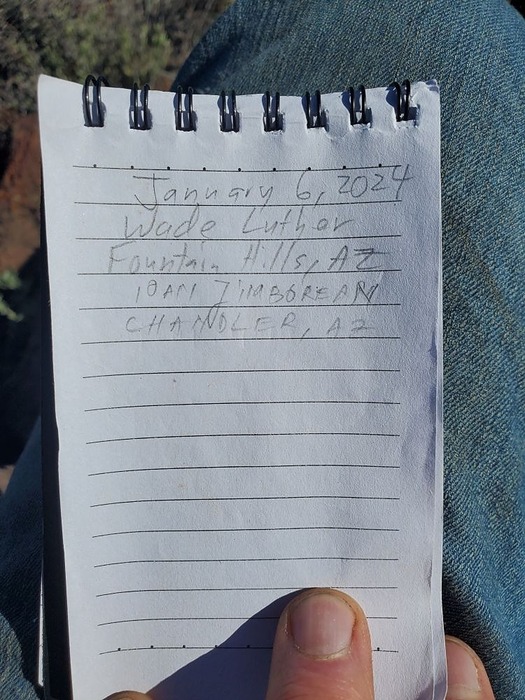 January 6, 2024
Wade Luther
Fountain Hills, AZ
CHANDLER, AZ